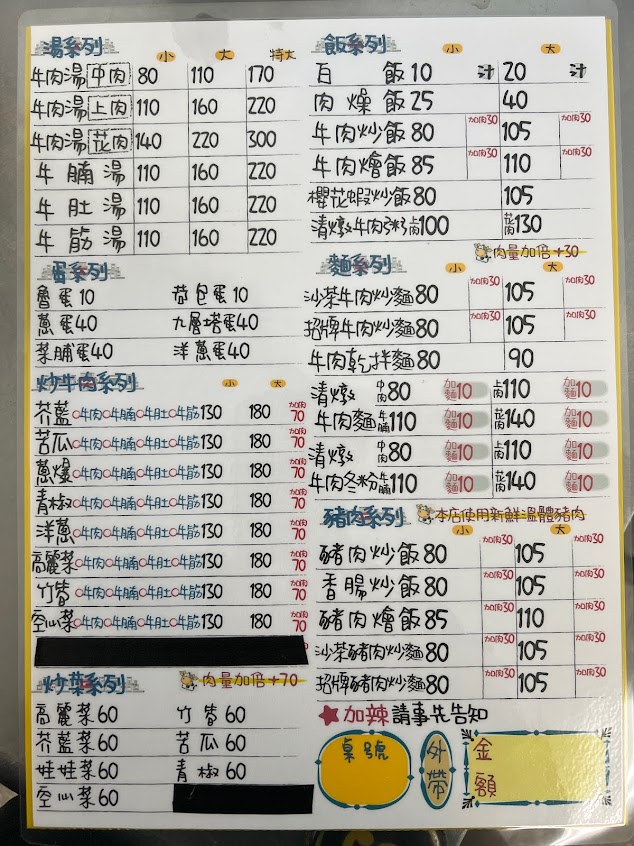 湯系列
小 大 特大
牛肉湯 中肉 80 110 170
牛肉湯 上肉 110 160 220
牛肉湯 花肉 140 220 300
牛腩湯 110 160 220
牛肚湯 110 160 220
牛筋湯 110 160 220
蛋系列
魯蛋10 荷包蛋10
蔥蛋40 九層塔蛋40
菜脯蛋40 洋蔥蛋40
炒牛肉系列
小 大
芥藍 牛肉 牛腩 牛肚 牛筋 130 180 加肉70
苦瓜 牛肉 牛腩 牛肚 牛筋 130 180 加肉70
蔥爆 牛肉 牛腩 牛肚 牛筋 130 180 加肉70
青椒 牛肉 牛腩 牛肚 牛筋 130 180 加肉70
洋蔥 牛肉 牛腩 牛肚 牛筋 130 180 加肉70
高麗菜 牛肉 牛腩 牛肚 牛筋 130 180 加肉70
竹筍 牛肉 牛腩 牛肚 牛筋 130 180 加肉70
空心菜 牛肉 牛腩 牛肚 牛筋 130 180 加肉70
炒菜系列 肉量加倍+70
高麗菜60 竹筍60
芥藍菜60 苦瓜60
娃娃菜60 青椒60
空心菜60
飯系列
小 大
白飯10 汁 20 汁
肉燥飯25 40
牛肉炒飯80 加肉30 105 加肉30
牛肉燴飯85 加肉30 110 加肉30
櫻花蝦炒飯80 105
清燉牛肉粥 上肉100 花肉130
麵系列 肉量加倍+30
小 大
沙茶牛肉炒麵80 加肉30 105 加肉30
招牌牛肉炒麵80 加肉30 105 加肉30
牛肉乾拌麵80 90
清燉 中肉80 加麵10 上肉110 加麵10
牛肉麵 牛腩110 加麵10 花肉140 加麵10
清燉 中肉80 加麵10 上肉110 加麵10
牛肉冬粉 牛腩110 加麵10 花肉140 加麵10
豬肉系列 本店使用新鮮溫體豬肉
小 大
豬肉炒飯80 加肉30 105 加肉30
香腸炒飯80 加肉30 105 加肉30
豬肉燴飯85 加肉30 110 加肉30
沙茶豬肉炒麵80 加肉30 105 加肉30
招牌豬肉炒麵80 加肉30 105 加肉30
★加辣請事先告知
桌號 外帶 金額